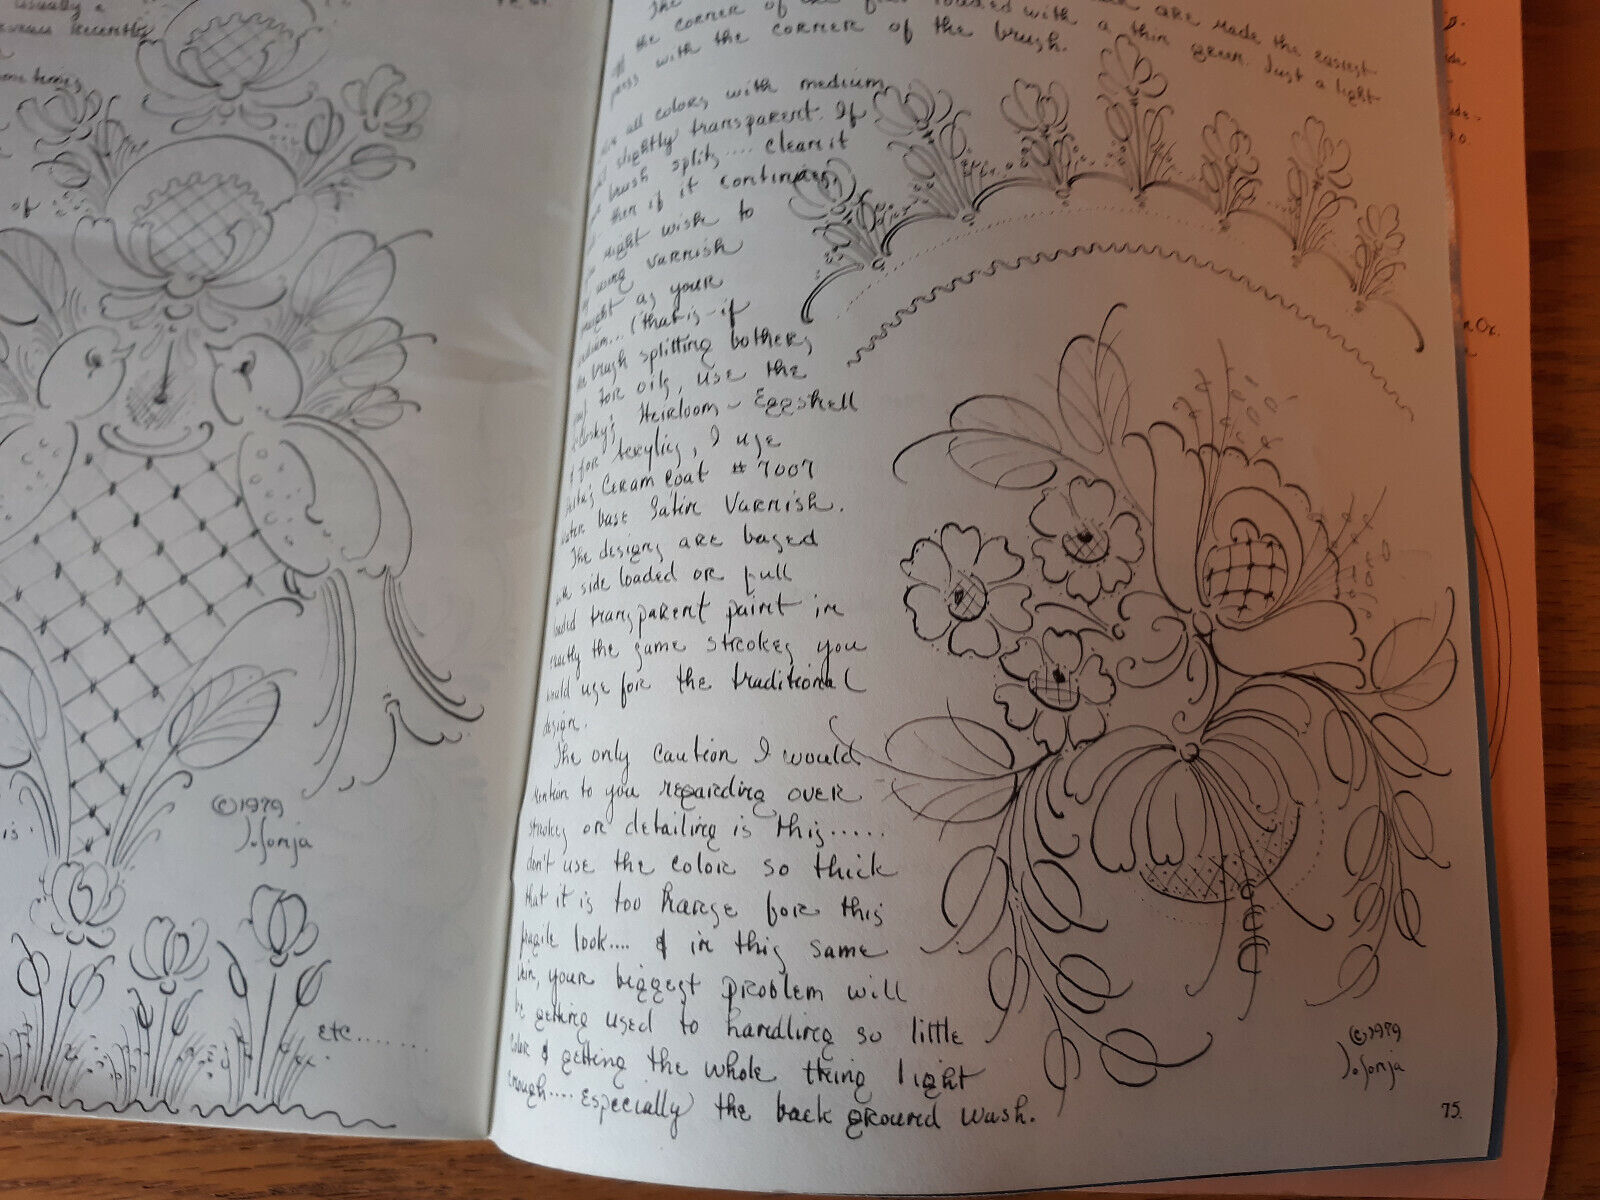 usually a
recently
sometimes
of
is.
©1979
Jo Sonja
etc.......
The are made the easiest
the corner of the flat loaded with a thin green. Just a light
press with the corner of the brush.
all colors with medium
slightly transparent. If
brush splits.... clean it
then if it continues,
might wish to
using varnish
as your
medium... (that is - if
brush splitting bothers
you) for oils, use the
Heirloom - Eggshell
& for Acrylics, I use
Delta's Ceramcoat #7007
water base Satin Varnish.
The designs are based
side loaded or full
loaded transparent paint in
exactly the same strokes you
would use for the traditional
design.
The only caution I would
mention to you regarding over
strokes or detailing is this.....
don't use the color so thick
that it is too harsh for this
fragile look.... & in this same
vein, your biggest problem will
be getting used to handling so little
color & getting the whole thing light
enough.... Especially the back ground wash.
©1979
Jo Sonja
75.